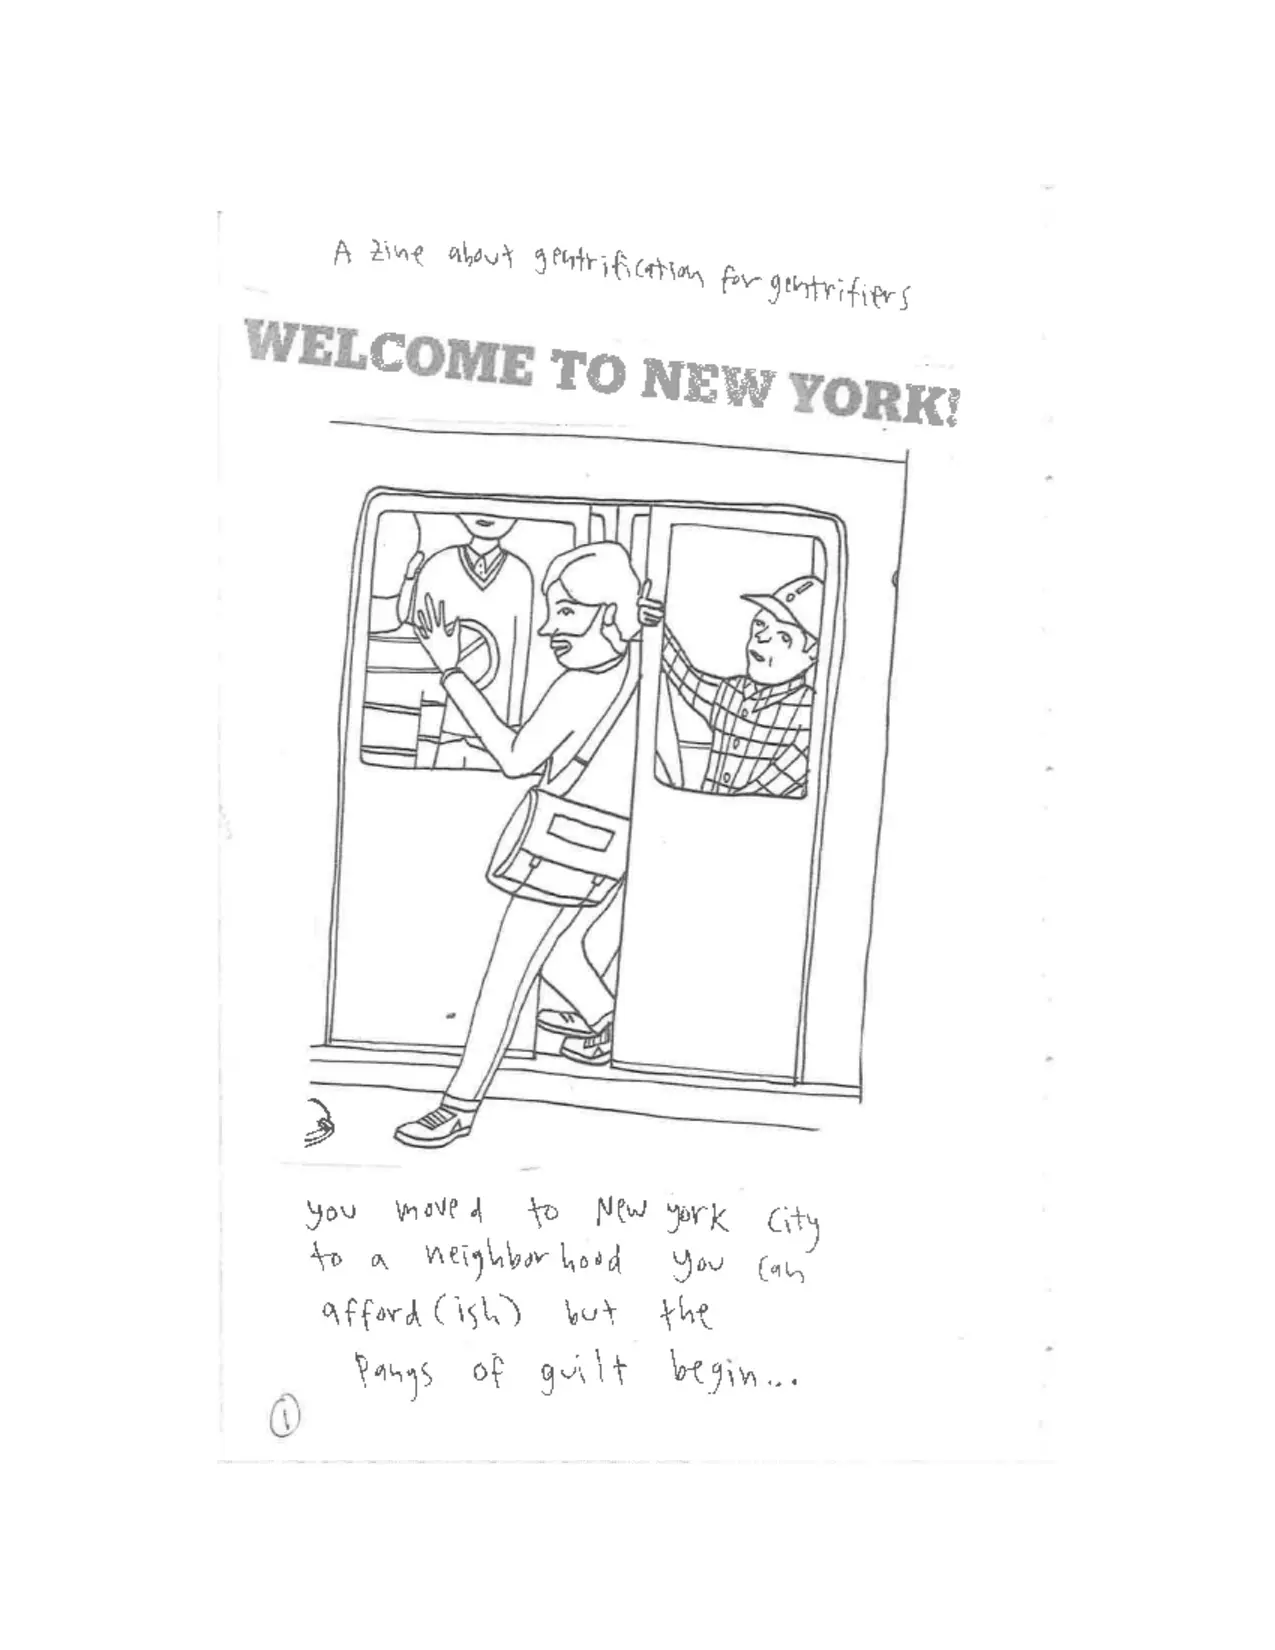 A zine about gentrification for gentrifiers
WELCOME TO NEW YORK!
you moved to New york City
to a neighborhood you can
afford (ish) but the
Pangs of guilt begin...
1